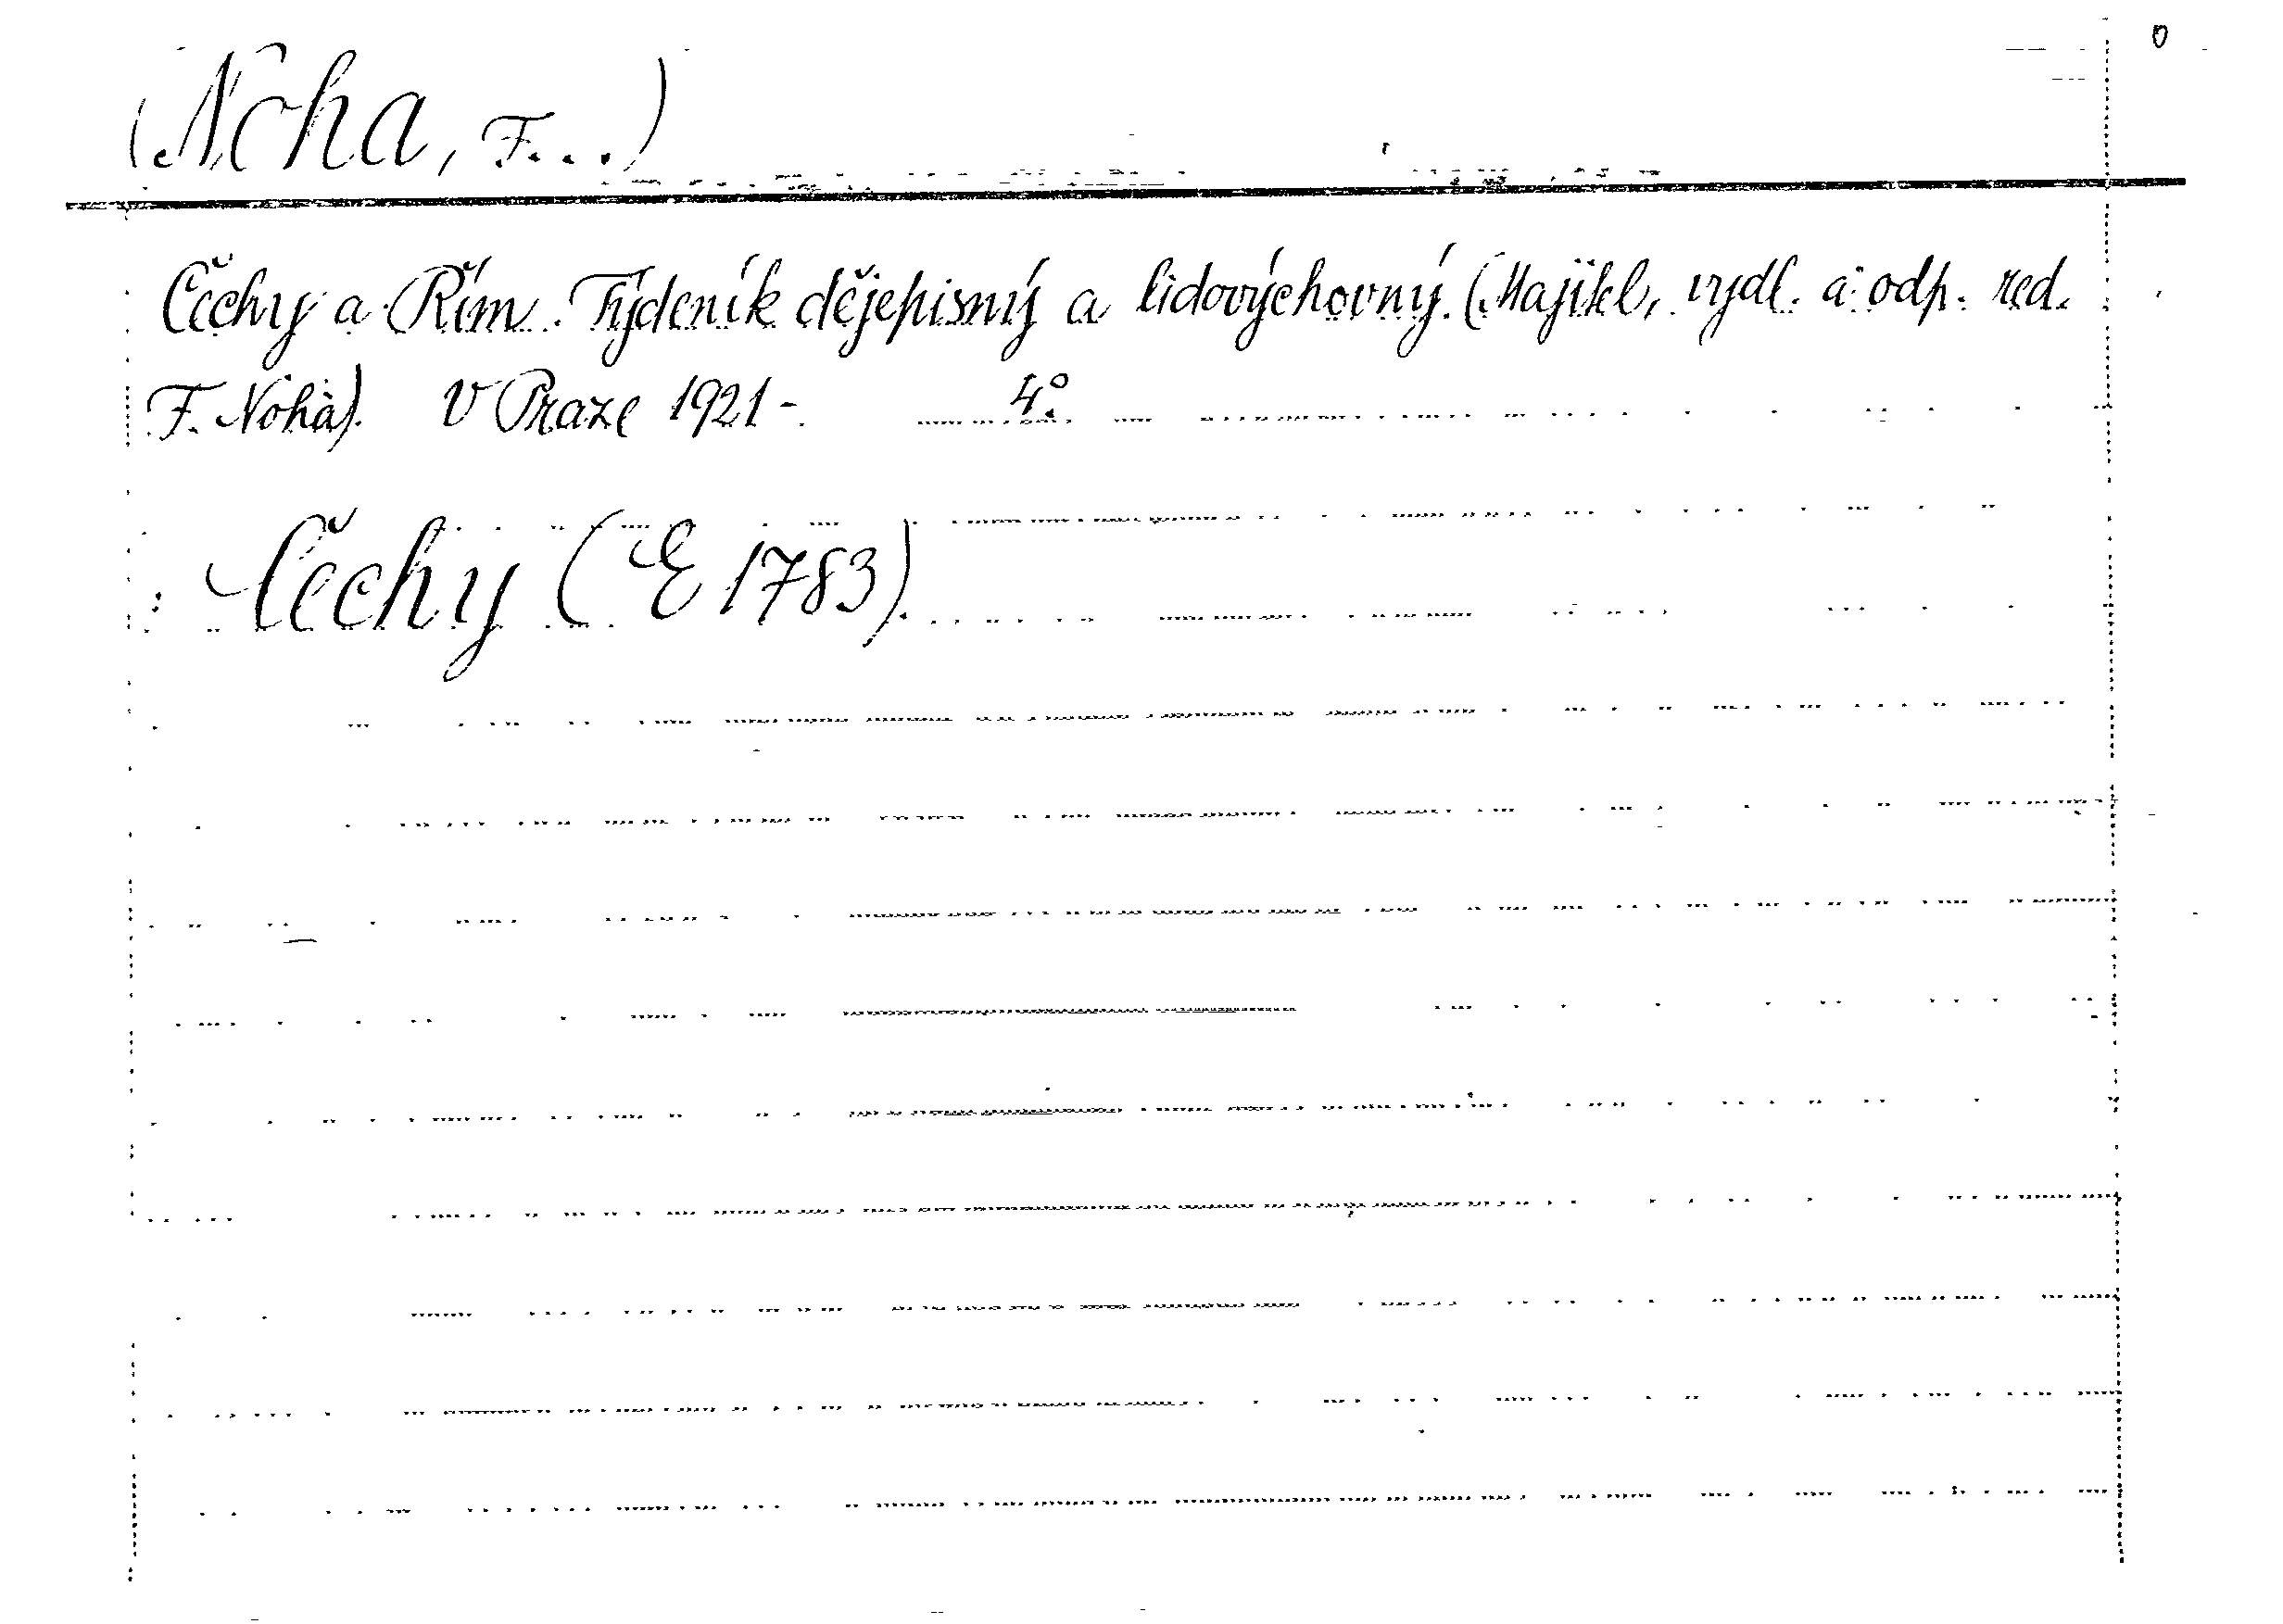 0
(Noha, F...)
Čechy a Řím. Týdeník dějepisný a lidovýchovný. (Majitel, vydl. a odp. red.
F. Noha). V Praze 1921 -. 4°.
Čechy (E 1783).